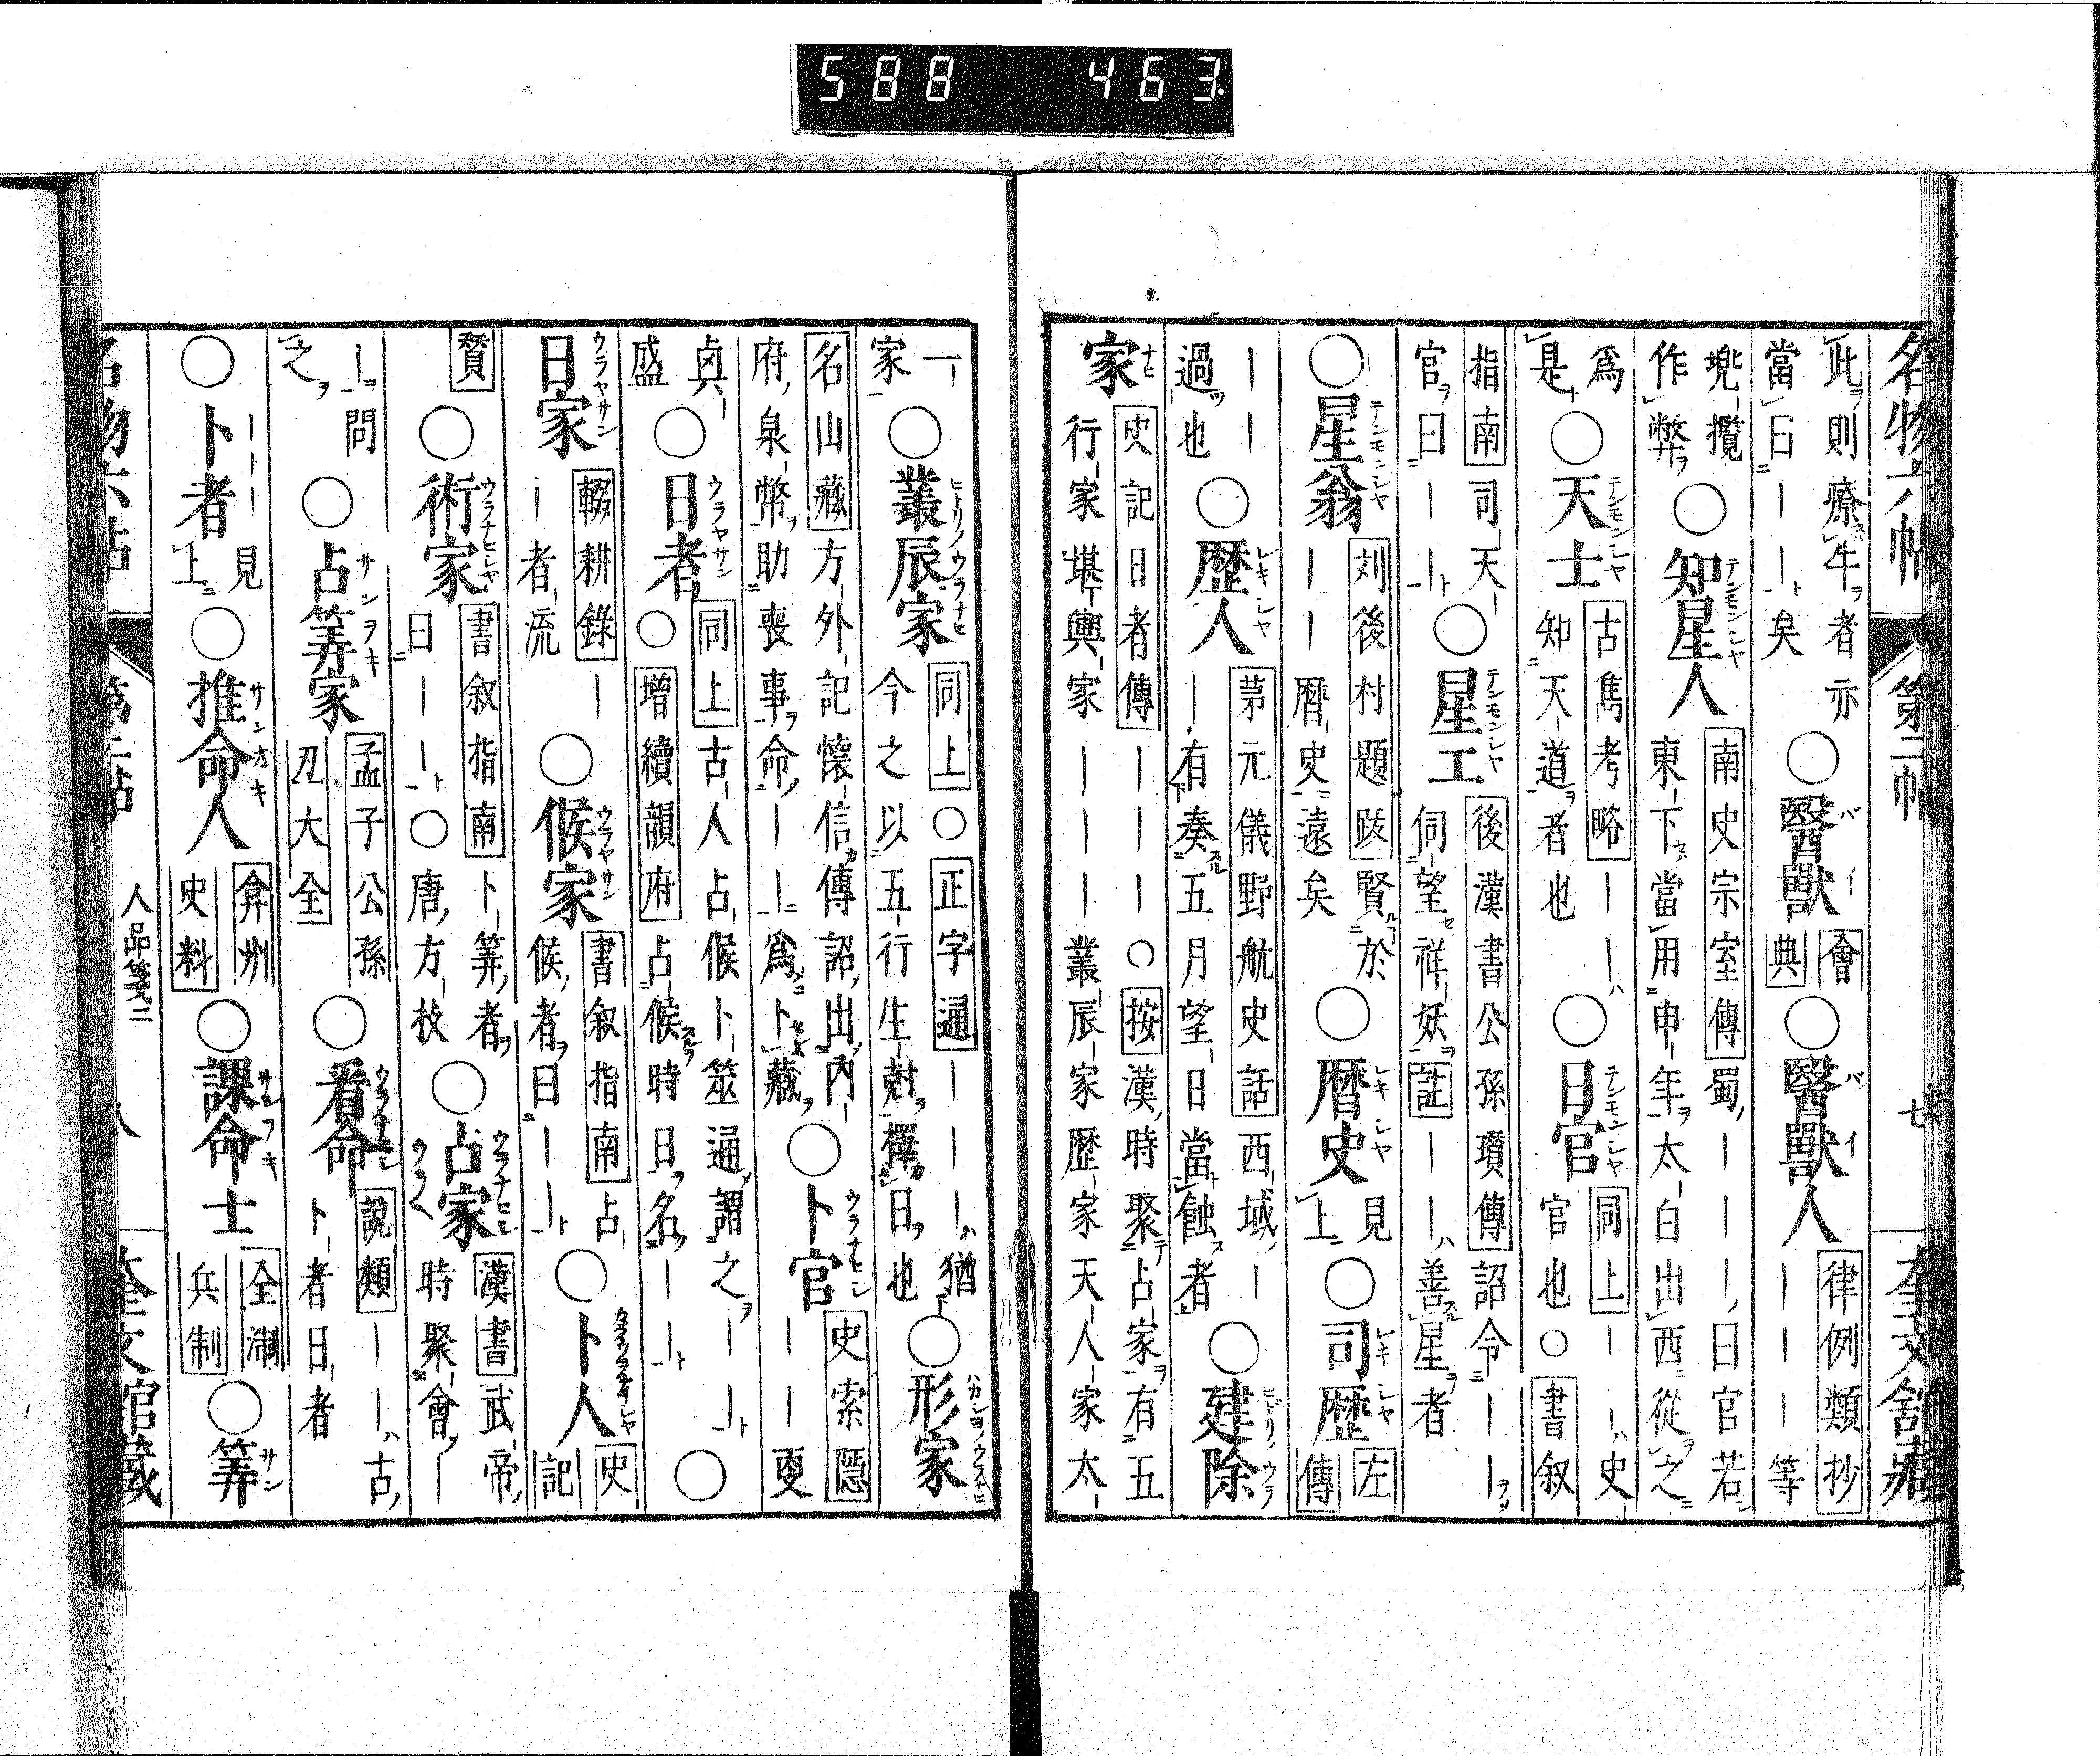 588 463
名物六帖 第二帖 七 奎文舘藏
此則療牛者亦當曰――矣○醫獸會典○醫獸人律例類抄―――等
兠攬作弊○知星人南史宗室傳蜀―――曰官若東下當用申年太白出西從之
爲是○天士古雋考略――知天道者也○日官同上――史官也○書叙
指南司天官曰――○星工後漢書公孫瓚傳詔令――伺望祥妖註――善星者
○星翁刘後村題跋賢於――曆史遠矣○曆史見上○司歴左傳
――過也○歴人茅元儀野航史話西域――有奏五月望日當蝕者○建除
家史記日者傳――――○按漢時聚占家有五行家堪輿家―――叢辰家歴家天人家太
一家○叢辰家同上○正字通―――猶今之以五行生尅擇日也○形家
名山藏方外記懷信傳詔出内府泉幣助喪事命――爲卜藏○卜官史索隠――更
盛○日者同上古人占候卜筮通謂之――○增續韻府占候時日名――○
日家輟耕錄――者流○候家書叙指南占候者曰――○卜人史記
賛○術家書叙指南卜筭者曰――○唐方技○占家漢書武帝時聚會―
―問之○占筭家孟子公孫丑大全○看命說類――古卜者日者
○卜者見上○推命人弇州史料○課命士全淛兵制○筭
名物六帖 第二帖 人品箋二 八 奎文舘藏